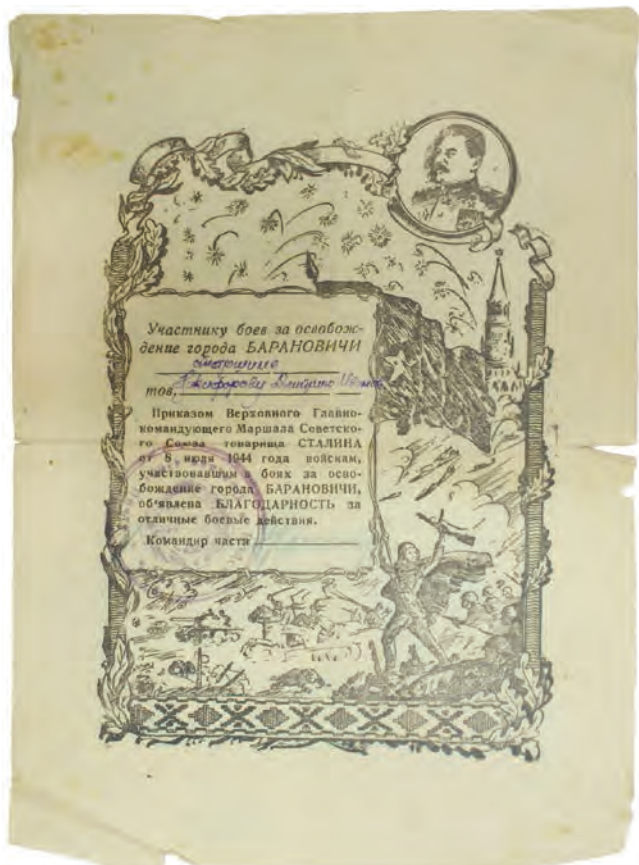 Участнику боев за освобож-
дение города БАРАНОВИЧИ
старшине
тов. Никифорову Дмитрию
Приказом Верховного Главно-
командующего Маршала Советско-
го Союза товарища СТАЛИНА
от 8 июля 1944 года войскам,
участвовавшим в боях за осво-
бождение города БАРАНОВИЧИ,
об'явлена БЛАГОДАРНОСТЬ за
отличные боевые действия.
Командир части